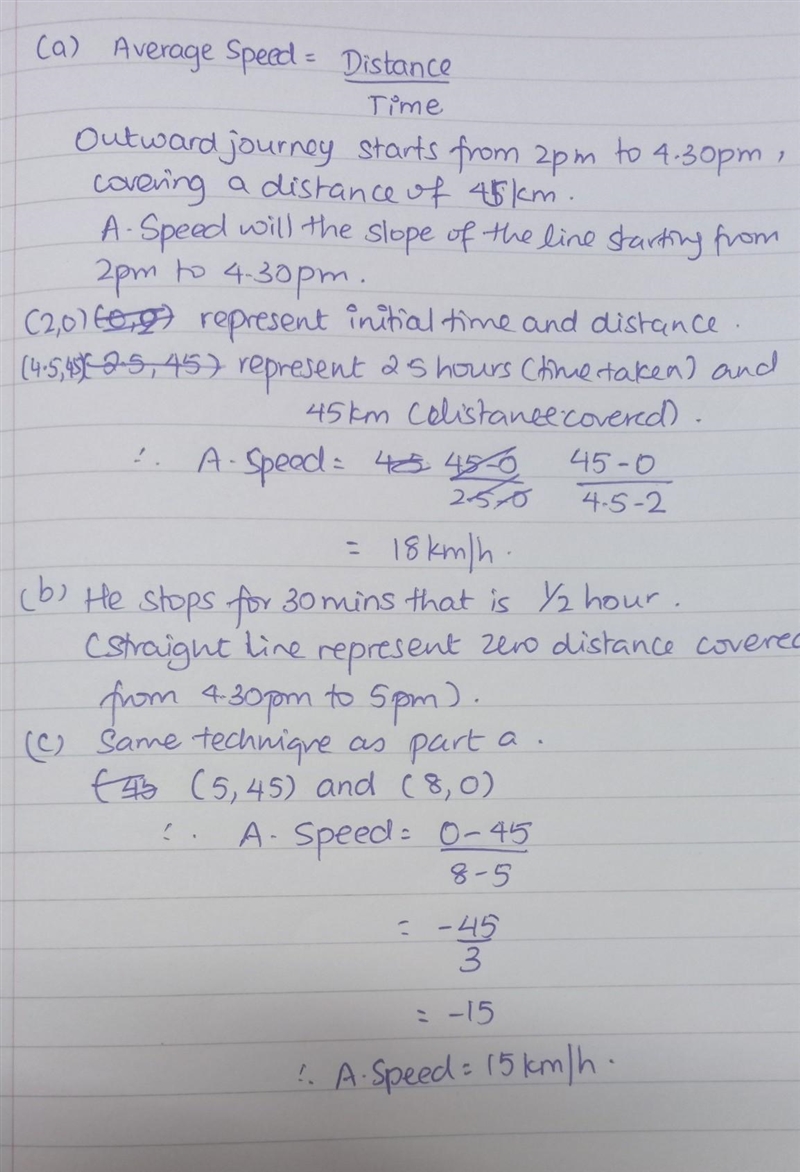 (a) Average Speed = Distance
Time
Outward journey starts from 2pm to 4.30pm,
covering a distance of 45km.
A. Speed will the slope of the line starting from
2pm to 4.30pm.
(2,0) (0,0) represent initial time and distance.
(4.5,45) (2.5,45) represent 2.5 hours (time taken) and
45km (distance covered).
∴ A. Speed = 45 45-0 45-0
2.5-0 4.5-2
= 18km/h.
(b) He stops for 30mins that is 1/2 hour.
(straight line represent zero distance covered
from 4.30pm to 5pm).
(c) Same technique as part a.
(45 (5,45) and (8,0)
∴ A. Speed = 0-45
8-5
= -45
3
= -15
∴ A.Speed = 15km/h.